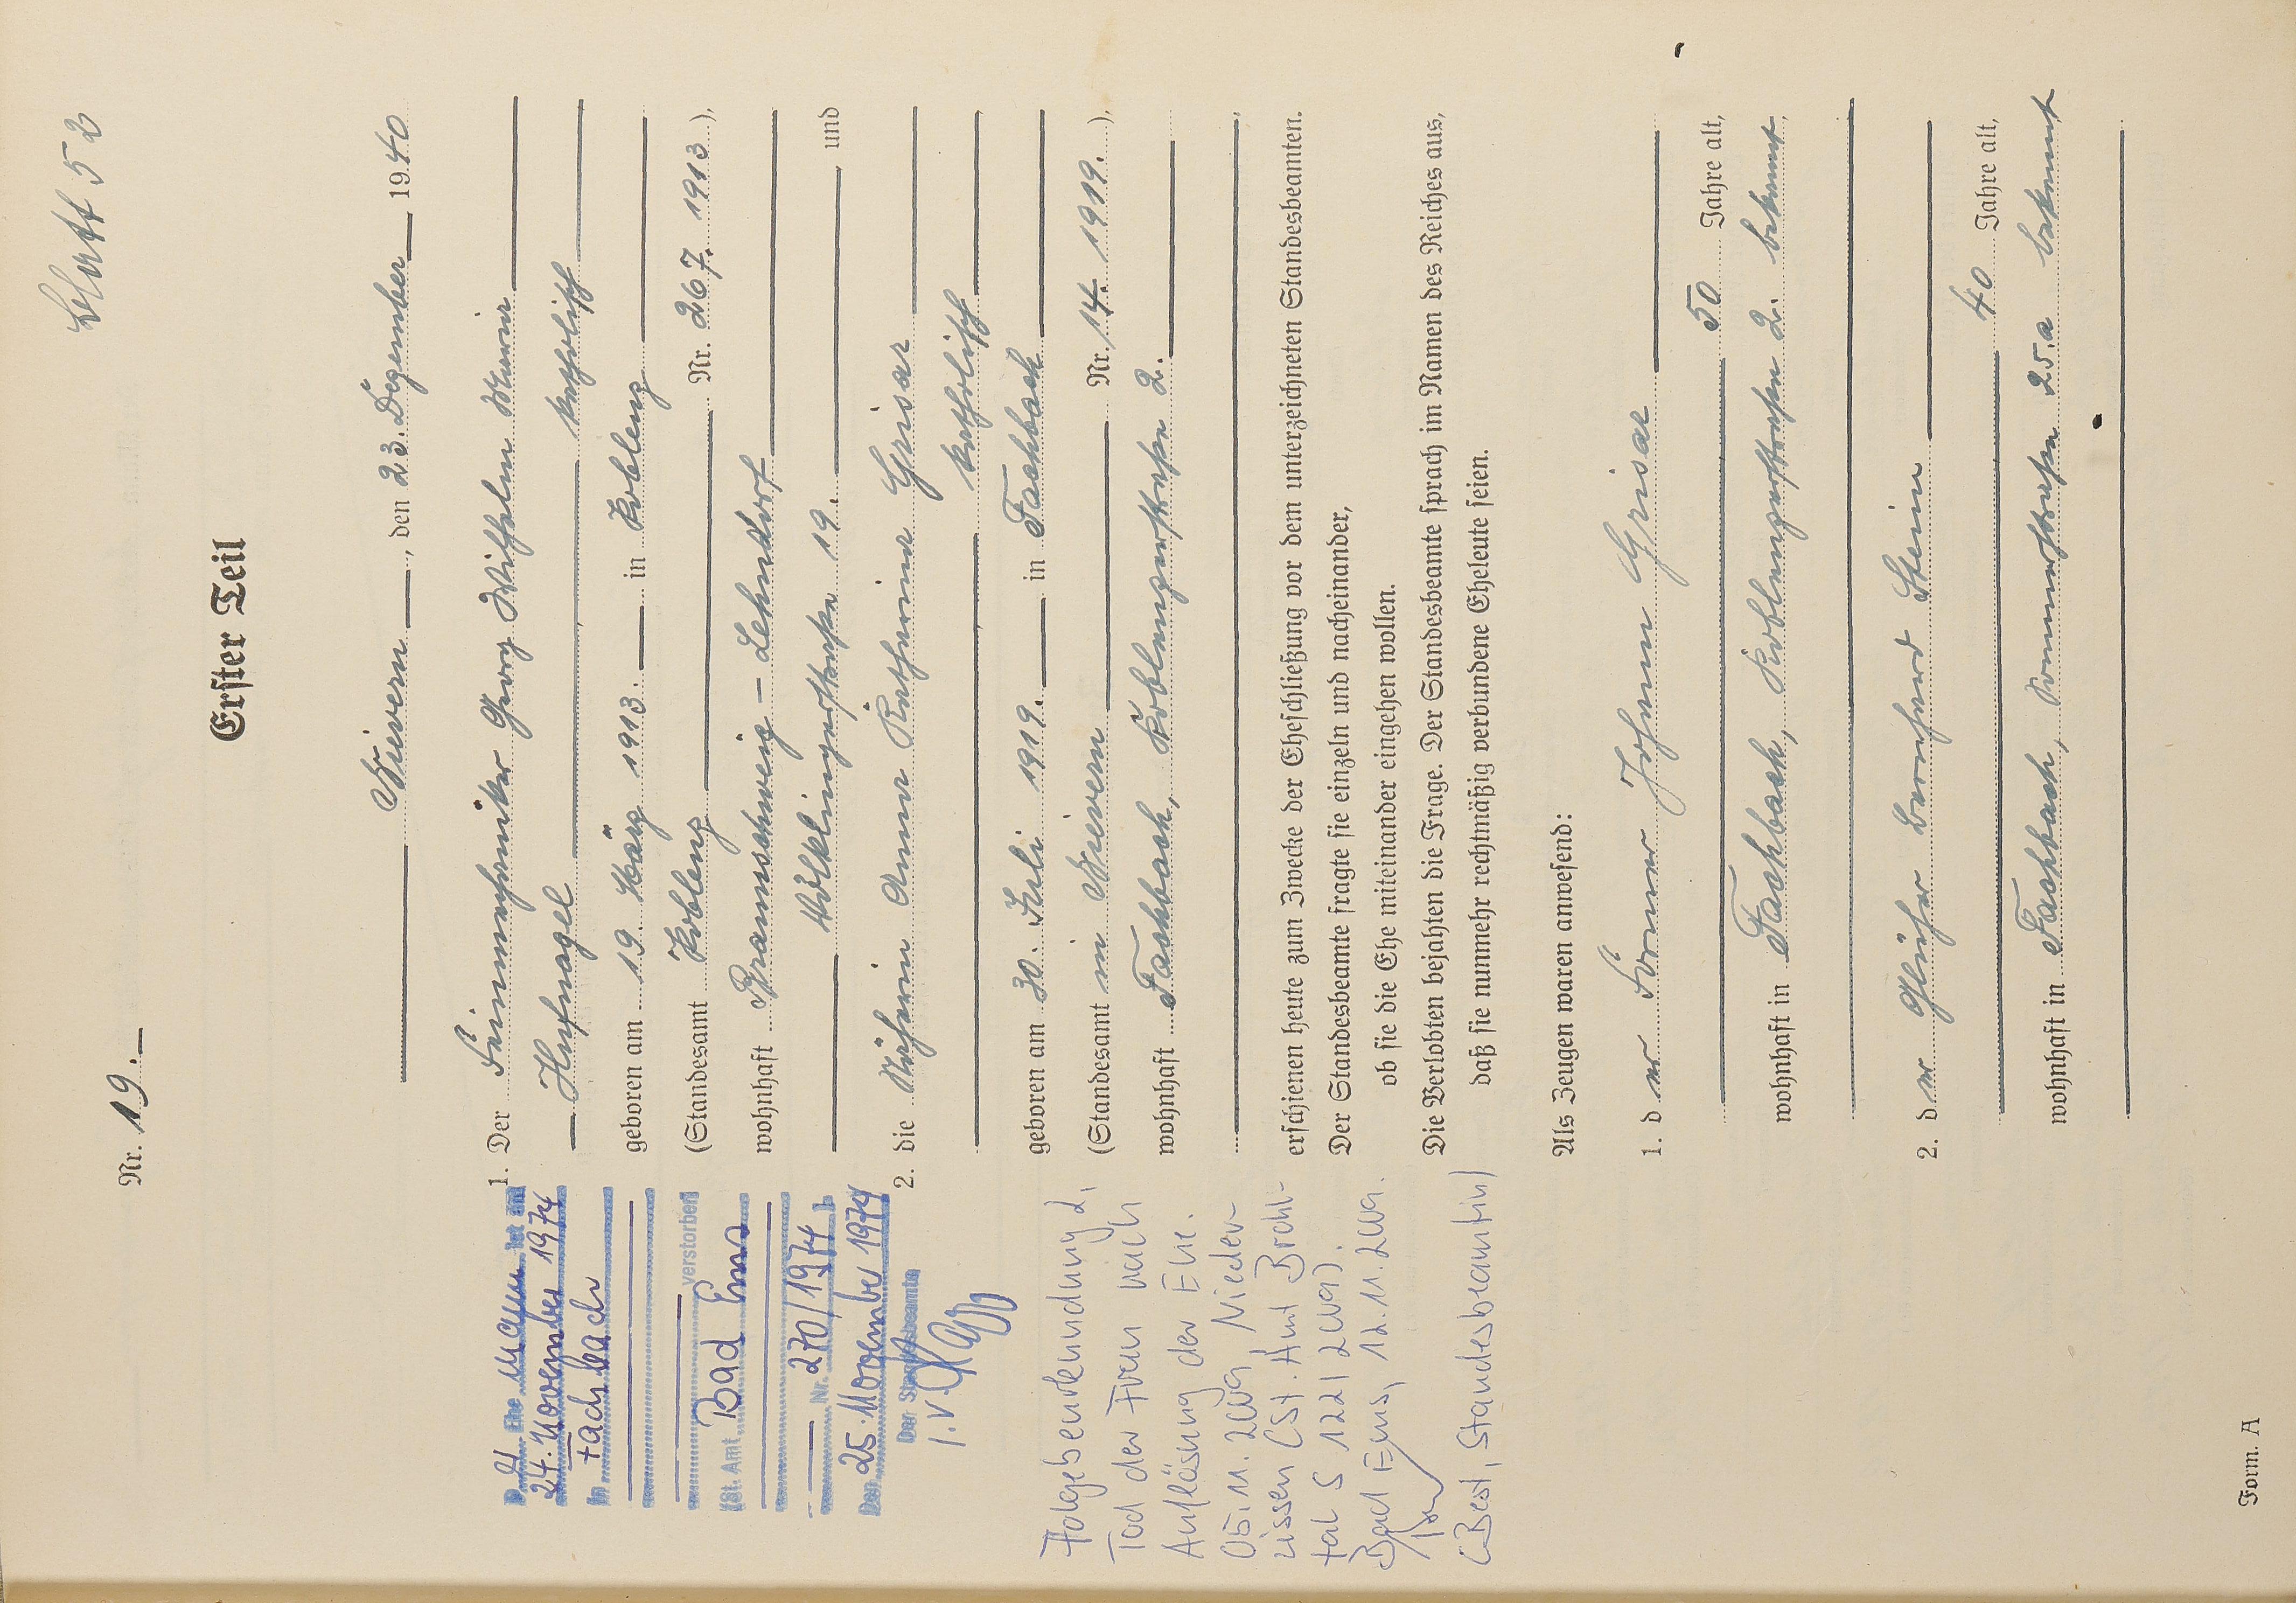 Blatt 52
Nr. 19.
Erster Teil
Nievern, den 23. Dezember 1940
1. Der Feinmechaniker Georg Wilhelm Maria
Hufnagel katholisch
geboren am 19. März 1913. in Koblenz
(Standesamt Koblenz Nr. 267. 1913.),
wohnhaft Braunschweig - Lehndorf
Völklingerstraße 19. und
2. die Näherin Anna Katharina Grisar
katholisch
geboren am 30. Juli 1919. in Fachbach
(Standesamt in Nievern Nr. 14. 1919.),
wohnhaft Fachbach, Koblenzerstraße 2.
erschienen heute zum Zwecke der Eheschließung vor dem unterzeichneten Standesbeamten.
Der Standesbeamte fragte sie einzeln und nacheinander,
ob sie die Ehe miteinander eingehen wollen.
Die Verlobten bejahten die Frage. Der Standesbeamte sprach im Namen des Reiches aus,
daß sie nunmehr rechtmäßig verbundene Eheleute seien.
Als Zeugen waren anwesend:
1. der Former Johann Grisar
50 Jahre alt,
wohnhaft in Fachbach, Koblenzerstraße 2. bekannt,
2. der Glüher Bernhard Stein
40 Jahre alt,
wohnhaft in Fachbach, Kommerstraße 25.a bekannt
Der Ehemann ist am
24. November 1974
in Fachbach
verstorben
(St. Amt Bad Ems
Nr. 270/1974)
Den 25. November 1974
Der Standesbeamte
I.V.
Folgebeurkundung d.
Tod der Frau nach
Auflösung der Ehe.
05.11.2009, Nieder-
zissen (St. Amt Brohl-
tal S 122/2009).
Bad Ems, 12.11.2009.
(Best, Standesbeamtin)
Form. A